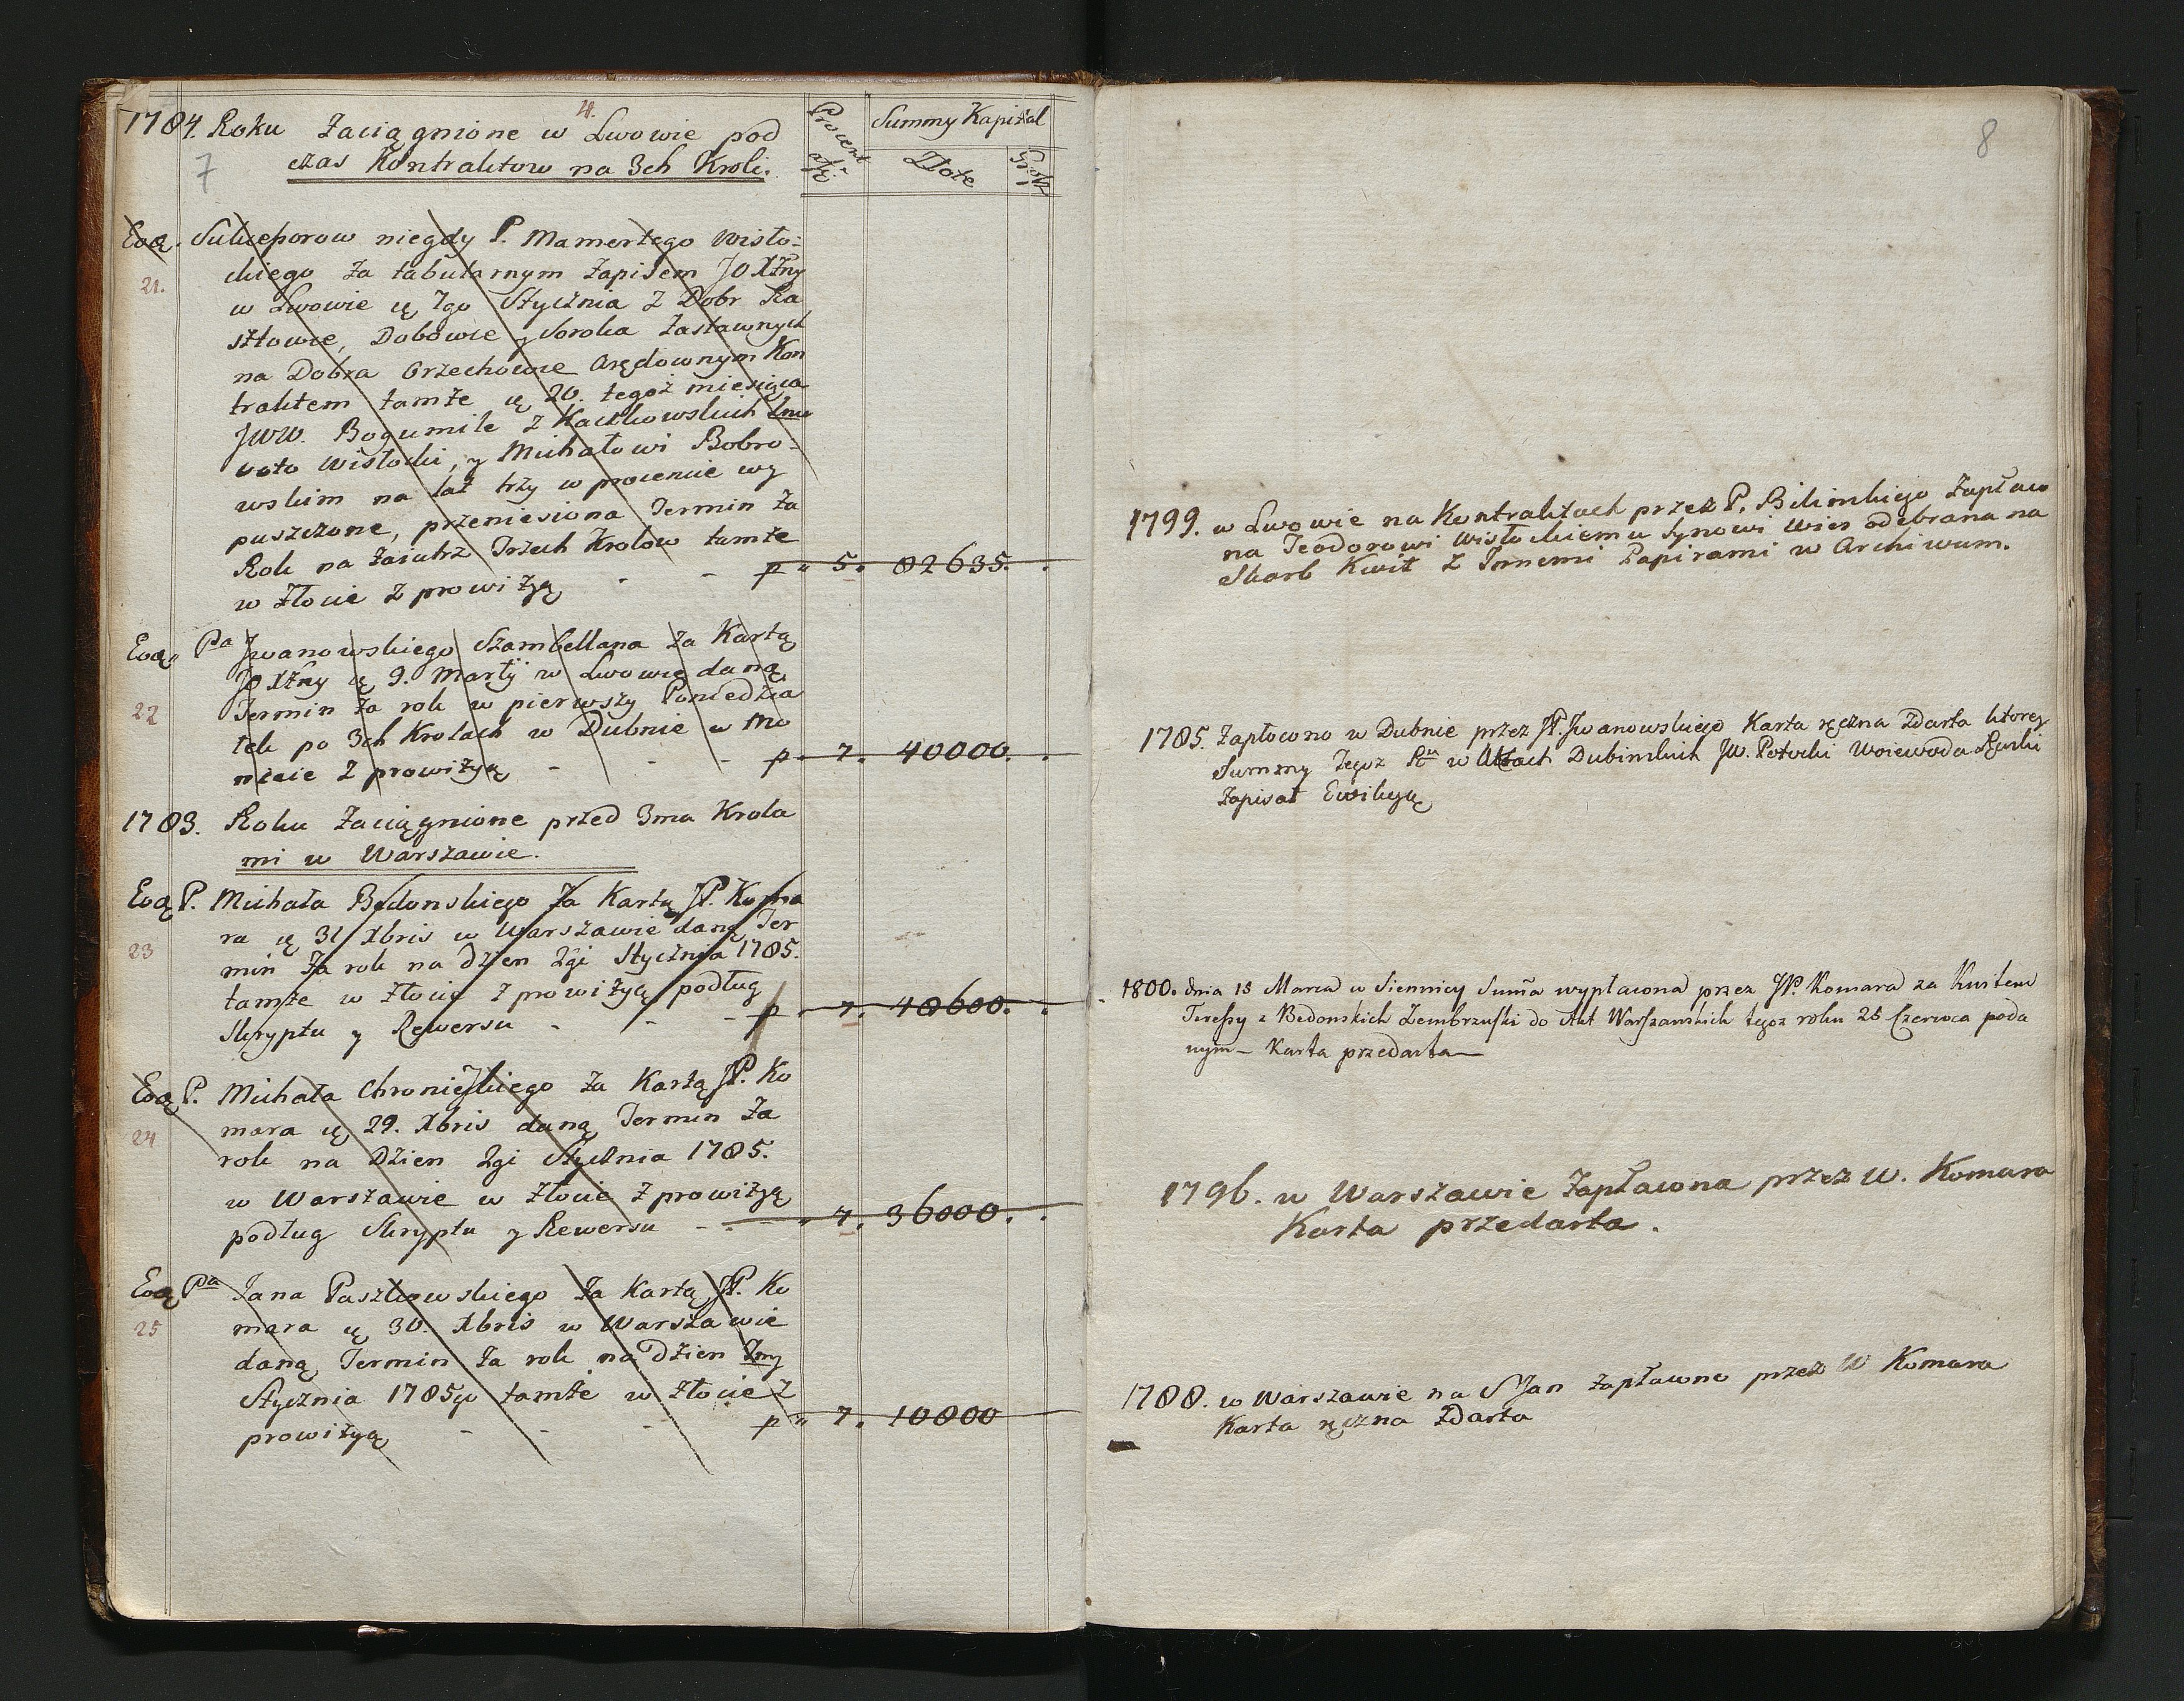 4.
1784. Roku Zaciągnione w Lwowie pod
czas Kontraktow na 3ch Kroli.
7
Procent
Summy Kapital
Złote
Grosz
Eva. Sukceporow niegdy P. Mamertego Wisło=
21. ckiego za tabularnym zapisem JO Xżny
w Lwowie ę 7go Stycznia z Dobr Ra
sztowie, Dobowce y Soroka zastawnych
na Dobra Orzechowce Arędownym Kon
traktem tamże ę 20. tegoż miesiąca
JWW. Bogumile z Kaczkowskich
voto Wisłocki, y Michałowi Bobro=
wskim na lat trzy w procencie wy
puszczone, przeniesiona Termin za
Rok na zaiutrz Trzech Krolow tamże
w Złocie z prowizyą - - p " 5. 82635. .
Eva. Pa Jwanowskiego Szambellana za Kartą
JO Xżny ę 9. Martij w Lwowie daną
22 Termin za rok w pierwszy Poniedzia
łek po 3ch Krolach w Dubnie w Mo
necie z prowizyą - - - p. 7. 40000. .
1783. Roku Zaciągnione przed 3ma Krola
mi w Warszawie.
Eva P. Michała Bedonskiego za Kartą JP. Koma
ra ę 31 Xbris w Warszawie daną Ter
23 min za rok na dzien 2gi Stycznia 1785.
tamże w Złocie z prowizyą podług
Skryptu y Rewersu - - - p 7. 48600. .
Eva P. Michała Chronięskiego za Kartą JP. Ko
24 mara ę 29. Xbris daną Termin za
rok na Dzien 2gi Stycznia 1785.
w Warszawie w Złocie z prowizyą
podług Skryptu y Rewersu - " 7. 36000. .
Eva Pa Jana Paszkowskiego za Kartą JP. Ko
25 mara ę 30. Xbris w Warszawie
daną Termin za rok na Dzien 2my
Stycznia 1785go tamże w Złocie z
prowizyą - - - p " 7. 10800
8
1799. w Lwowie na Kontraktach przez P. Bilinskiego zapłaco
na Teodorowi Wisłockiemu Synowi Wies odebrana na
Skarb Kwit z Innemi Papirami w Archiwum.
1785. Zapłocono w Dubnie przez JP. Jwanowskiego Karta ręczna zdarta ktorey
Summy tegoz Ru w Aktach Dubinskich JW. Potocki Woiewoda Ruski
zapisał Ewikcyą
1800. dnia 13 Marca w Siennicy Suma wypłacona przez JP. Komara za Kwitem
Teressy z Bedonskich Zembrzuski do Akt Warszawskich tegoz roku 25 Czerwca poda
nym - Karta przedarta -
1796. w Warszawie Zapłacona przez W. Komara
Karta przedarta.
1788. w Warszawie na S Jan zapłacono przez W Komara
Karta ręczna zdarta